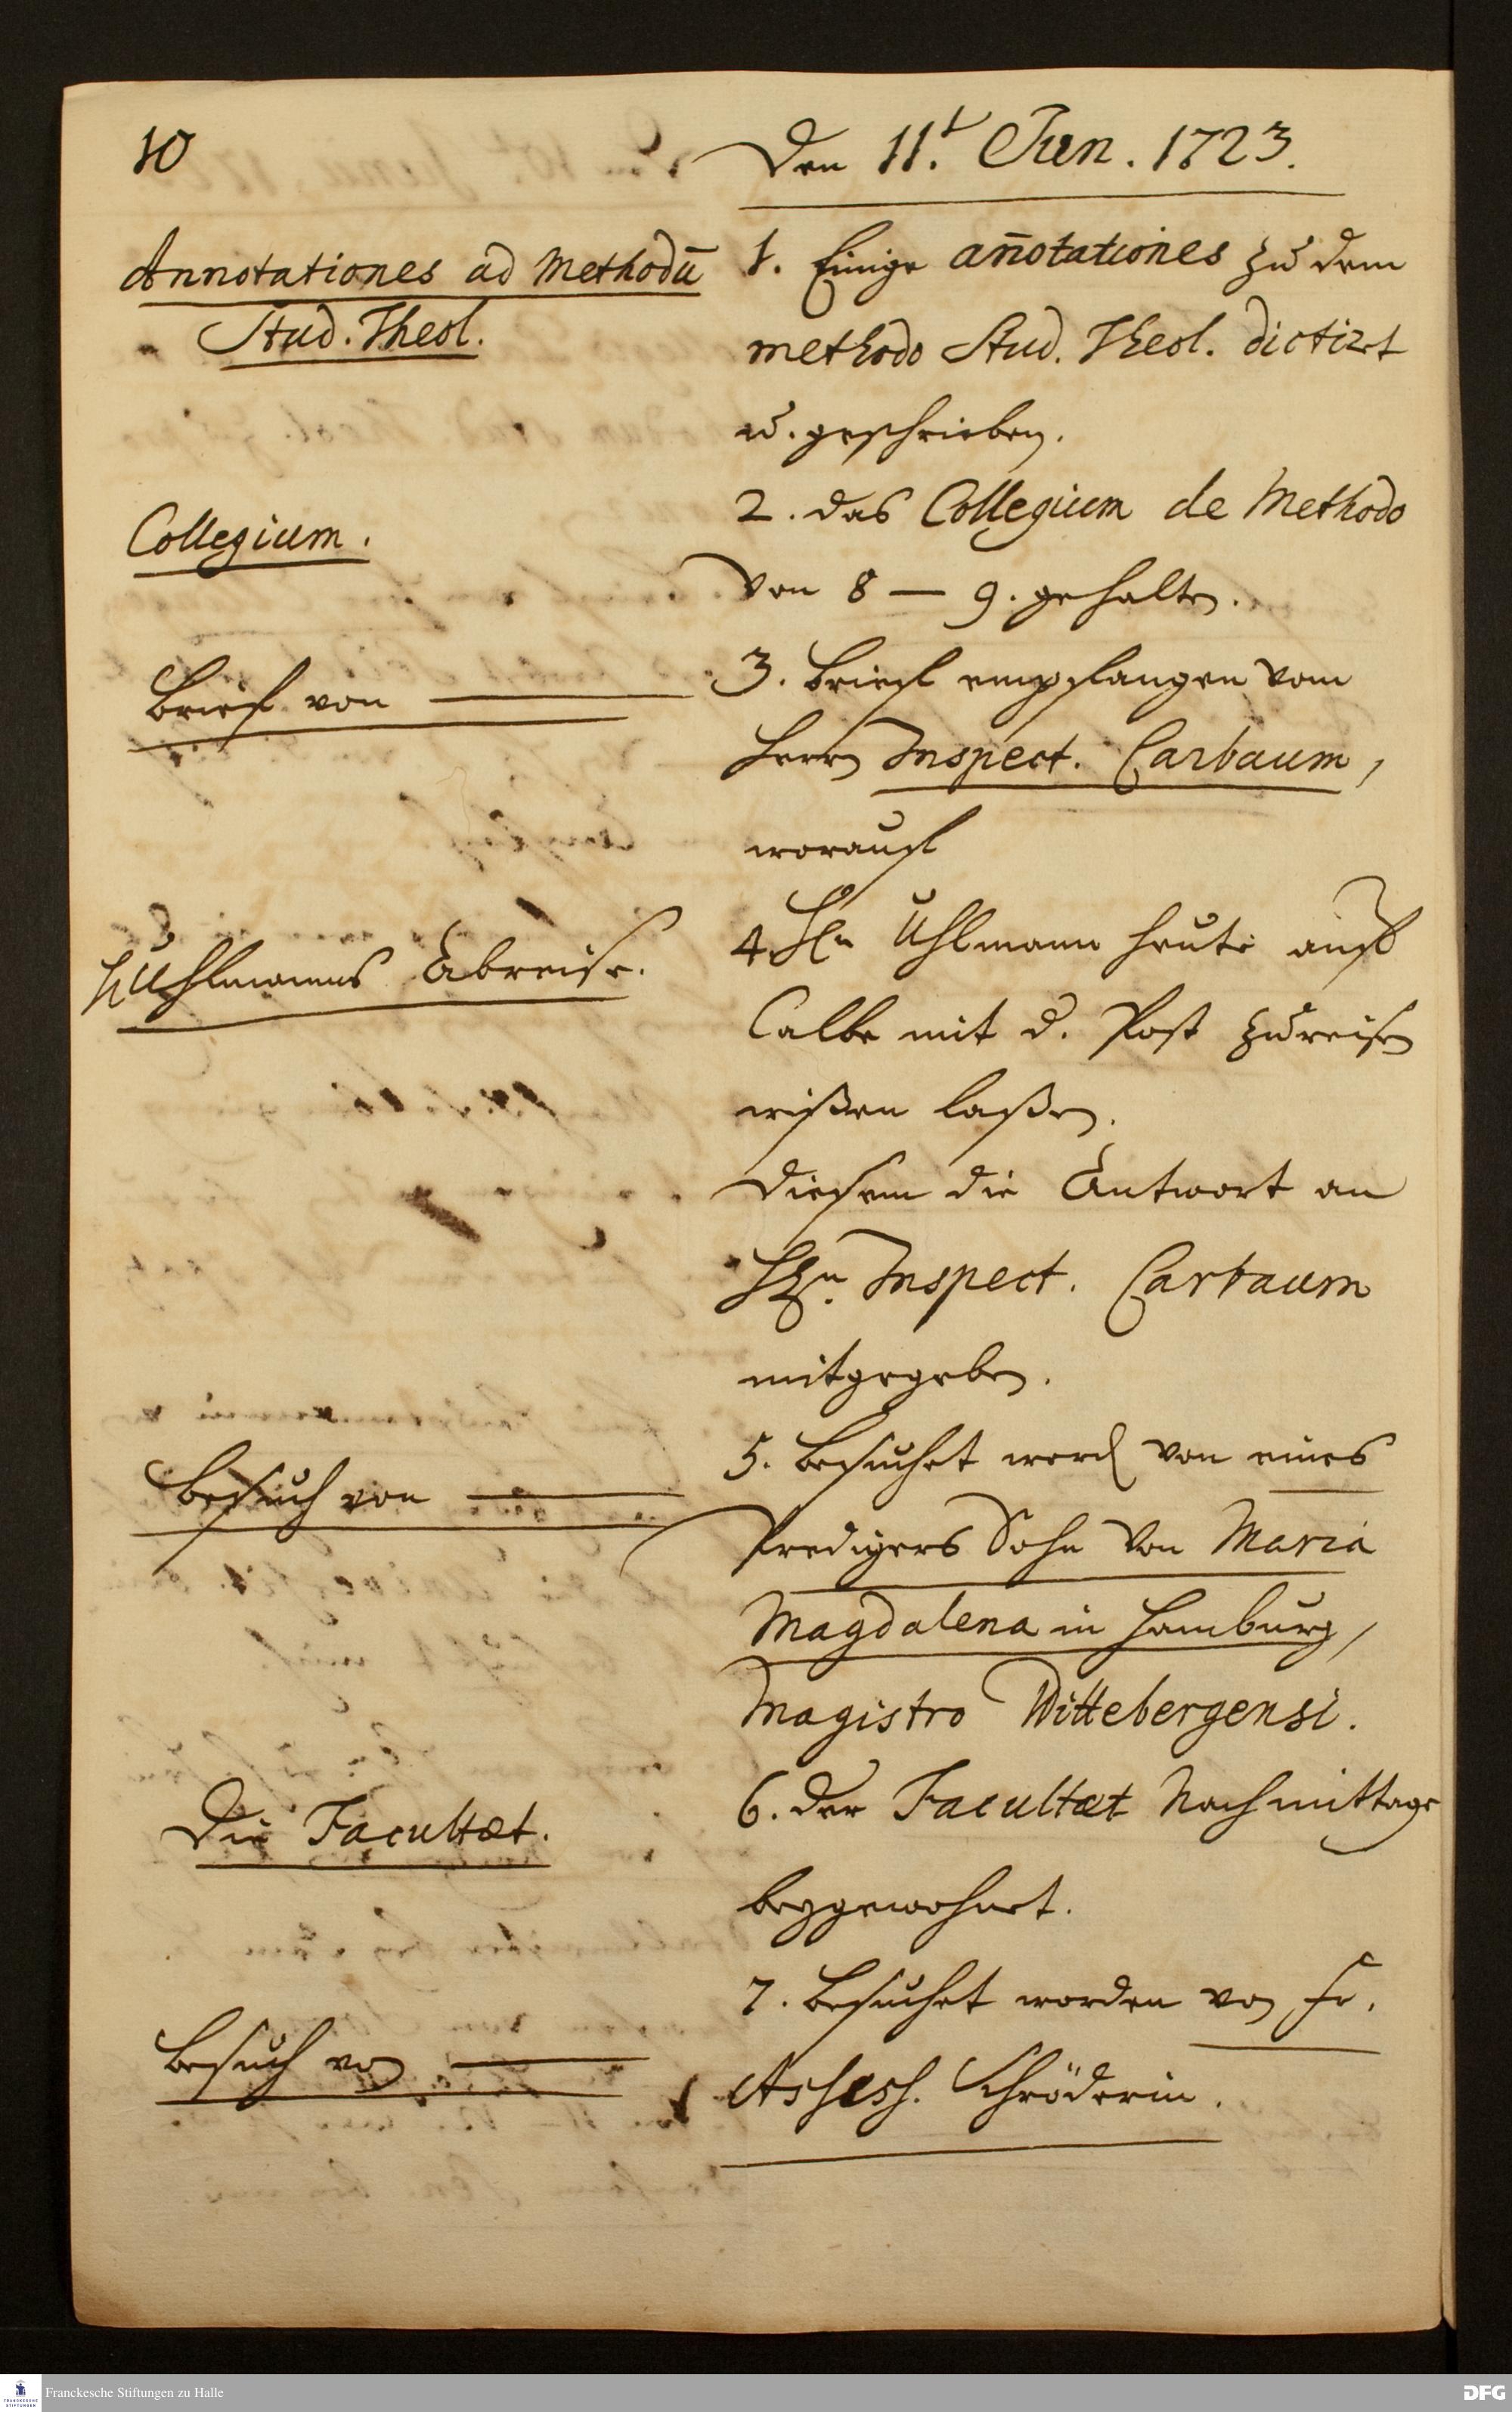 10
Den 11.t Jun. 1723.
Annotationes ad Methodū
Stud. Theol.
1. Einige an̄otationes zu dem
methodo Stud. Theol. dictirt
u. geschrieben.
Collegium.
2. das Collegium de Methodo
von 8 — 9. gehalten.
Brief von —
3. Brieff empfangen vom
Herrn Inspect. Carbaum,
worauf
H Uhlmanns Abreise.
4. Hn Uhlmann heute auf
Calbe mit d. Post zureisen
wißen laßen.
diesem die Antwort an
Hn. Inspect. Carbaum
mitgegeben.
Besuch von —
5. Besuchet word von eines
Predigers Sohn von Maria
Magdalena in Hamburg,
Magistro Wittebergensi.
Die Facultæt.
6. der Facultæt Nachmittage
beygewohnet.
Besuch von —
7. Besuchet worden von Fr.
Assess. Schröderin.
Franckesche Stiftungen zu Halle
DFG